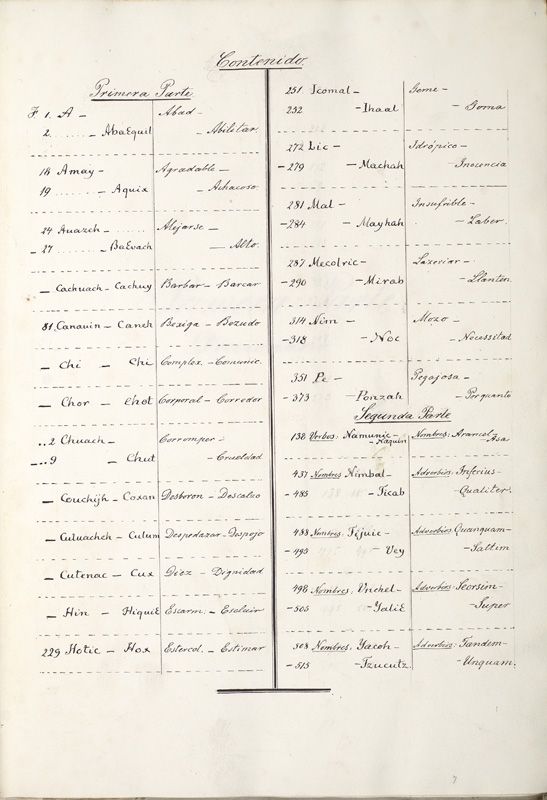 Contenido
Primera Parte
F 1. A – Abad –
2. – AbaEquil – Abilitar.
18 Amay – Agradable –
19 – Aquix – Achacoso
24 Auazch – Alejarse –
– 27 – BaEvach – Alto.
– Cachuach – Cachuy Barbar – Barcar
81. Canauin – Caneh Bexiga – Bozudo
– Chi – Chi Complex. – Comunic.
– Chor – Chot Corporal – Corredor
..2 Chuach – Corromper –
–..9 – Chut – Crueldad
– Couchijh – Coxan Desboron – Descalzo
– Culuachch – Culum Despedazar – Despojo
– Cutenac – Cux Diez – Dignidad
– Hin – HiquiE Escarm. – Escluir
229 Hotic – Hox Estercol. – Estimar
251 Icomal – Gome –
252 – Ihaal – Goma
272 Lic – Idrópico –
– 279 – Machah – Inocencia
281 Mal – Insufrible –
– 284 – Mayhah – Laber.
287 Mecolric – Lazeriar –
– 290 – Mirab – Llanten
314 Nim – Mozo –
– 318 – Noc – Necessitad
351 Pe – Pegajosa –
– 373 – Ponzah – Porquanto
Segunda Parte
138 Verbos: Namunic – Nombres: Arancel –
– Naquin – Asa
437 Nombres Nimbal – Adverbios: Inferius –
– 485 – Ticab – Qualiter.
488 Nombres: Tijuic – Adverbios: Quanquam –
– 495 – Vey – Saltim
498 Nombres, Vnchel – Adverbios: Seorsim –
– 505 – YaliE – Super
508 Nombres, Yacoh – Adverbios: Tandem –
– 515 – Tzucutz. – Unquam.
7